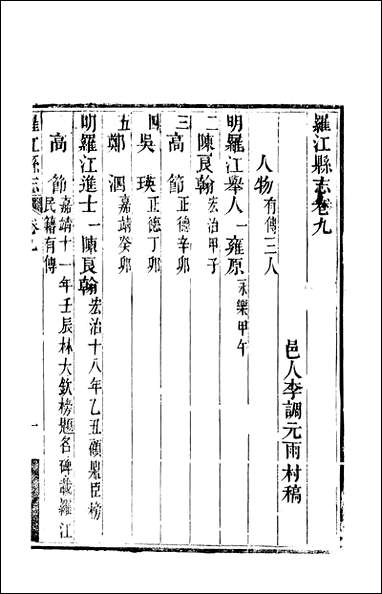 羅江縣志卷九
邑人李調元雨村稿
人物有傳三人
明羅江舉人一雍原永樂甲午
二陳良翰宏治甲子
三高節正德辛卯
四吳瑛正德丁卯
五鄭泗嘉靖癸卯
明羅江進士一陳良翰宏治十八年乙丑顧鼎臣榜
高節嘉靖十一年壬辰林大欽榜題名碑載羅江
民籍有傳
羅江縣志 卷九 一